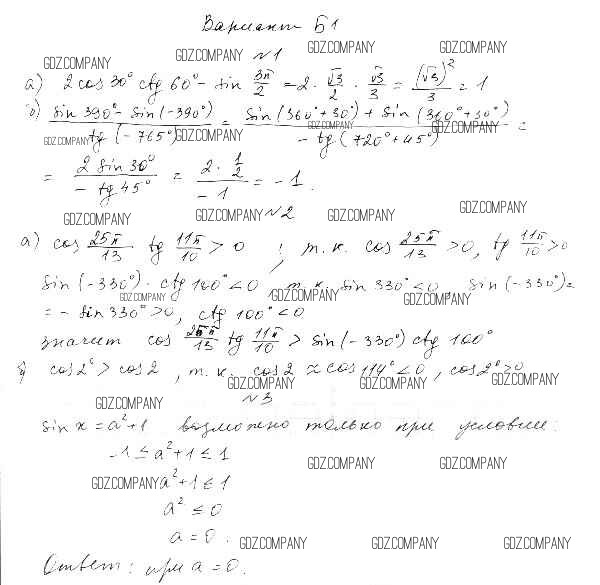 Вариант Б1
GDZ.COMPANY GDZ.COMPANY GDZ.COMPANY
N1
а) 2 cos 30° ctg 60° - sin 3π/2 = 2 · √3/2 · √3/3 = (√3)²/3 = 1
б) (sin 390° - sin(-390°))/(tg(-765°)) = (sin(360°+30°) + sin(360°+30°))/(-tg(720°+45°)) =
GDZ.COMPANY GDZ.COMPANY GDZ.COMPANY GDZ.COMPANY
= (2 sin 30°)/(-tg 45°) = (2 · 1/2)/(-1) = -1.
GDZ.COMPANY GDZ.COMPANY GDZ.COMPANY GDZ.COMPANY
N2
а) cos 25π/13 tg 11π/10 > 0 ; т.к. cos 25π/13 > 0, tg 11π/10 > 0
sin(-330°) · ctg 100° < 0, т.к. sin 330° < 0, sin(-330°) =
GDZ.COMPANY GDZ.COMPANY
= - sin 330° > 0, ctg 100° < 0
значит cos 25π/13 tg 11π/10 > sin(-330°) ctg 100°
б) cos 2° > cos 2, т.к. cos 2 ≈ cos 114° < 0, cos 2° > 0
GDZ.COMPANY GDZ.COMPANY GDZ.COMPANY
GDZ.COMPANY
N3
sin x = a² + 1 возможно только при условии:
-1 ≤ a² + 1 ≤ 1
GDZ.COMPANY GDZ.COMPANY
GDZ.COMPANY a² + 1 ≤ 1
a² ≤ 0
a = 0.
GDZ.COMPANY GDZ.COMPANY GDZ.COMPANY
Ответ: при a = 0.